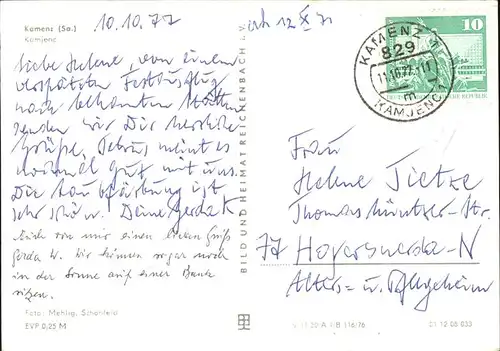 Kamenz (Sa.)
Kamjenc
10.10.77
Liebe Helene, von einem
verspäteten
nach bekannten Stätten
senden wir Dir herzliche
Grüße. Petrus meint es
nochmal gut mit uns.
Die Laubfärbung ist
sehr schön. Deine Gerda K
Auch von mir einen lieben Gruß
Gerda W. Wir können sogar noch
in der Sonne auf einer Bank
sitzen.
Foto: Mehlig, Schönfeld
EVP 0,25 M
BILD UND HEIMAT REICHENBACH i. V.
12 X 77
KAMENZ 1
829
11.10.77
m
KAMJENC 1
10
Frau
Helene Tietze
Thomas Müntzer-Str.
77 Hoyerswerda-N
Alters- u. Pflegeheim
A 116/76
01 12 08 033